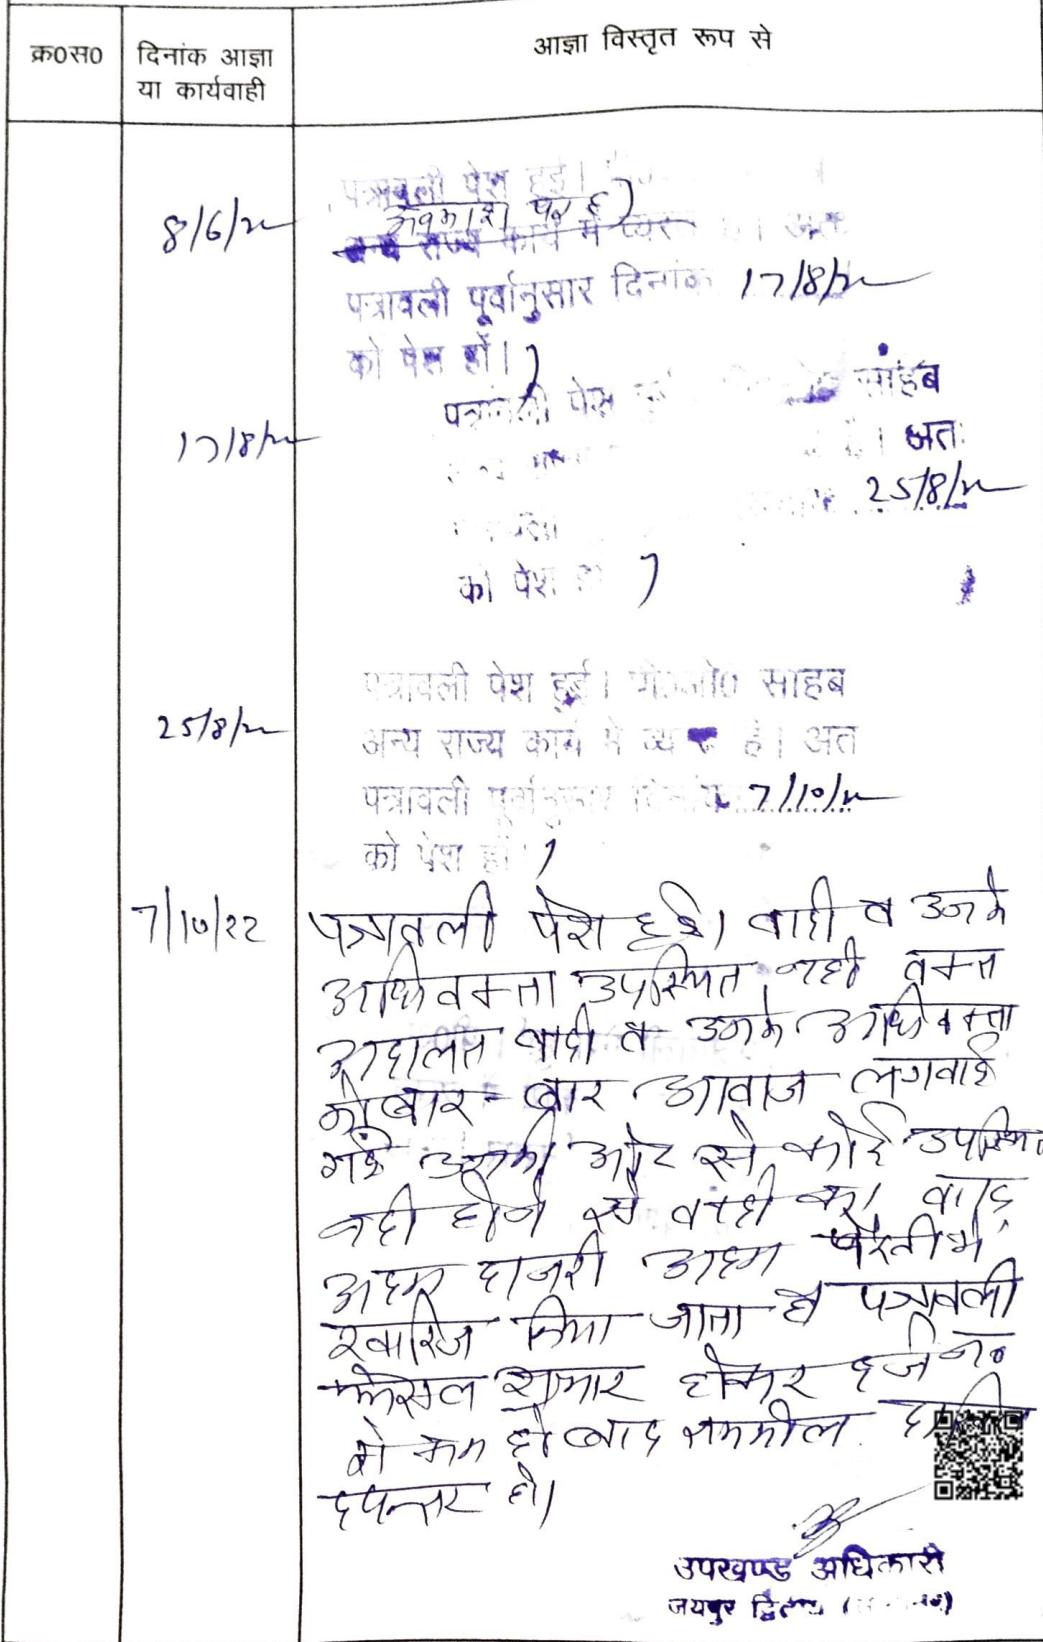 क्र०स०
दिनांक आज्ञा
या कार्यवाही
आज्ञा विस्तृत रूप से
8/6/22
पत्रावली पेश हुई।
अवकाश पर है
अन्य राज्य कार्य में व्यस्त है। अतः
पत्रावली पूर्वानुसार दिनांक 17/8/22
को पेश हों।
17/8/22
पत्रावली पेश साहब
है। अतः
25/8/22
को पेश हो
25/8/22
पत्रावली पेश हुई। पी०ओ० साहब
अन्य राज्य कार्य मे व्यस्त है। अत
पत्रावली पूर्वानुसार दिनांक 7/10/22
को पेश हो
7/10/22
पत्रावली पेश हुई। वादी व उनके
अधिवक्ता उपस्थित नही वक्त
अदालत वादी व उनके अधिवक्ता
को बार-बार आवाज लगवाई
गई उनकी ओर से कोई उपस्थित
नही होने से वादी का वाद
अदम हाजरी अदम पैरवी मे
खारिज किया जाता है पत्रावली
फैसल शुमार होकर दर्ज न०
से कम हो बाद तकमील दाखिल
दफ्तर हो।
उपखण्ड अधिकारी
जयपुर द्वितीय